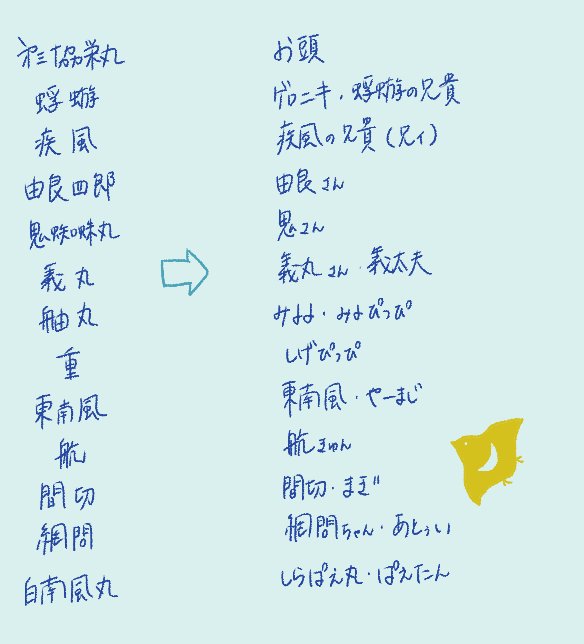 第三協栄丸 お頭
蜉蝣 ゲロニキ・蜉蝣の兄貴
疾風 疾風の兄貴(兄ィ)
由良四郎 由良さん
鬼蜘蛛丸 鬼さん
義丸 義丸さん・義太夫
舳丸 みよよ・みよぴっぴ
重 しげぴっぴ
東南風 東南風・やーまじ
航 航きゅん
間切 間切・まぎ
網問 網問ちゃん・あとぅい
白南風丸 しらぱえ丸・ぱえたん